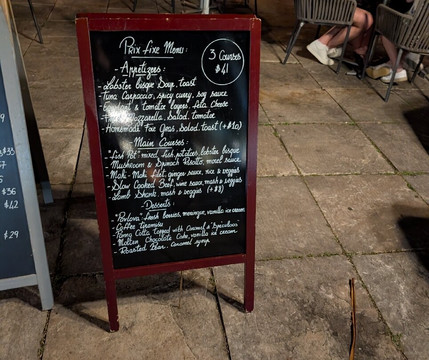 Prix fixe Menu:
3 Courses
$41
- Appetizers:
- Lobster bisque Soup, toast
- Tuna Carpaccio, spicy curry, soy sauce
- Eggplant & tomatoe layers, feta cheese
Mozzarella, Salad, tomatoe
- Homemade Foie Gras, Salad, toast (+$10)
- Main Courses -
- "Fish Pot" mixed fish, potatoes, lobster bisque
- Mushroom & Spinach Risotto, morel sauce
- Mahi-Mahi filet, ginger sauce, rice & veggies
- Slow Cooked Beef, wine sauce, mash & veggies
- Lamb Shank, mash & veggies (+$8)
- Desserts:
- Pavlova: fresh berries, meringue, vanilla ice cream
- Coffee tiramisu
- Panna Cotta topped with Caramel & Speculoos
- Molten Chocolate Cake, vanilla ice cream
- Roasted Pear, Caramel syrup.
$36
$29